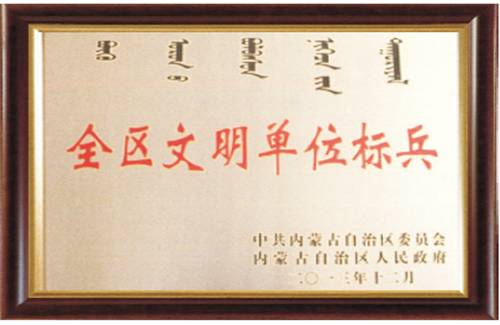 全区文明单位标兵
中共内蒙古自治区委员会
内蒙古自治区人民政府
二〇一三年十二月